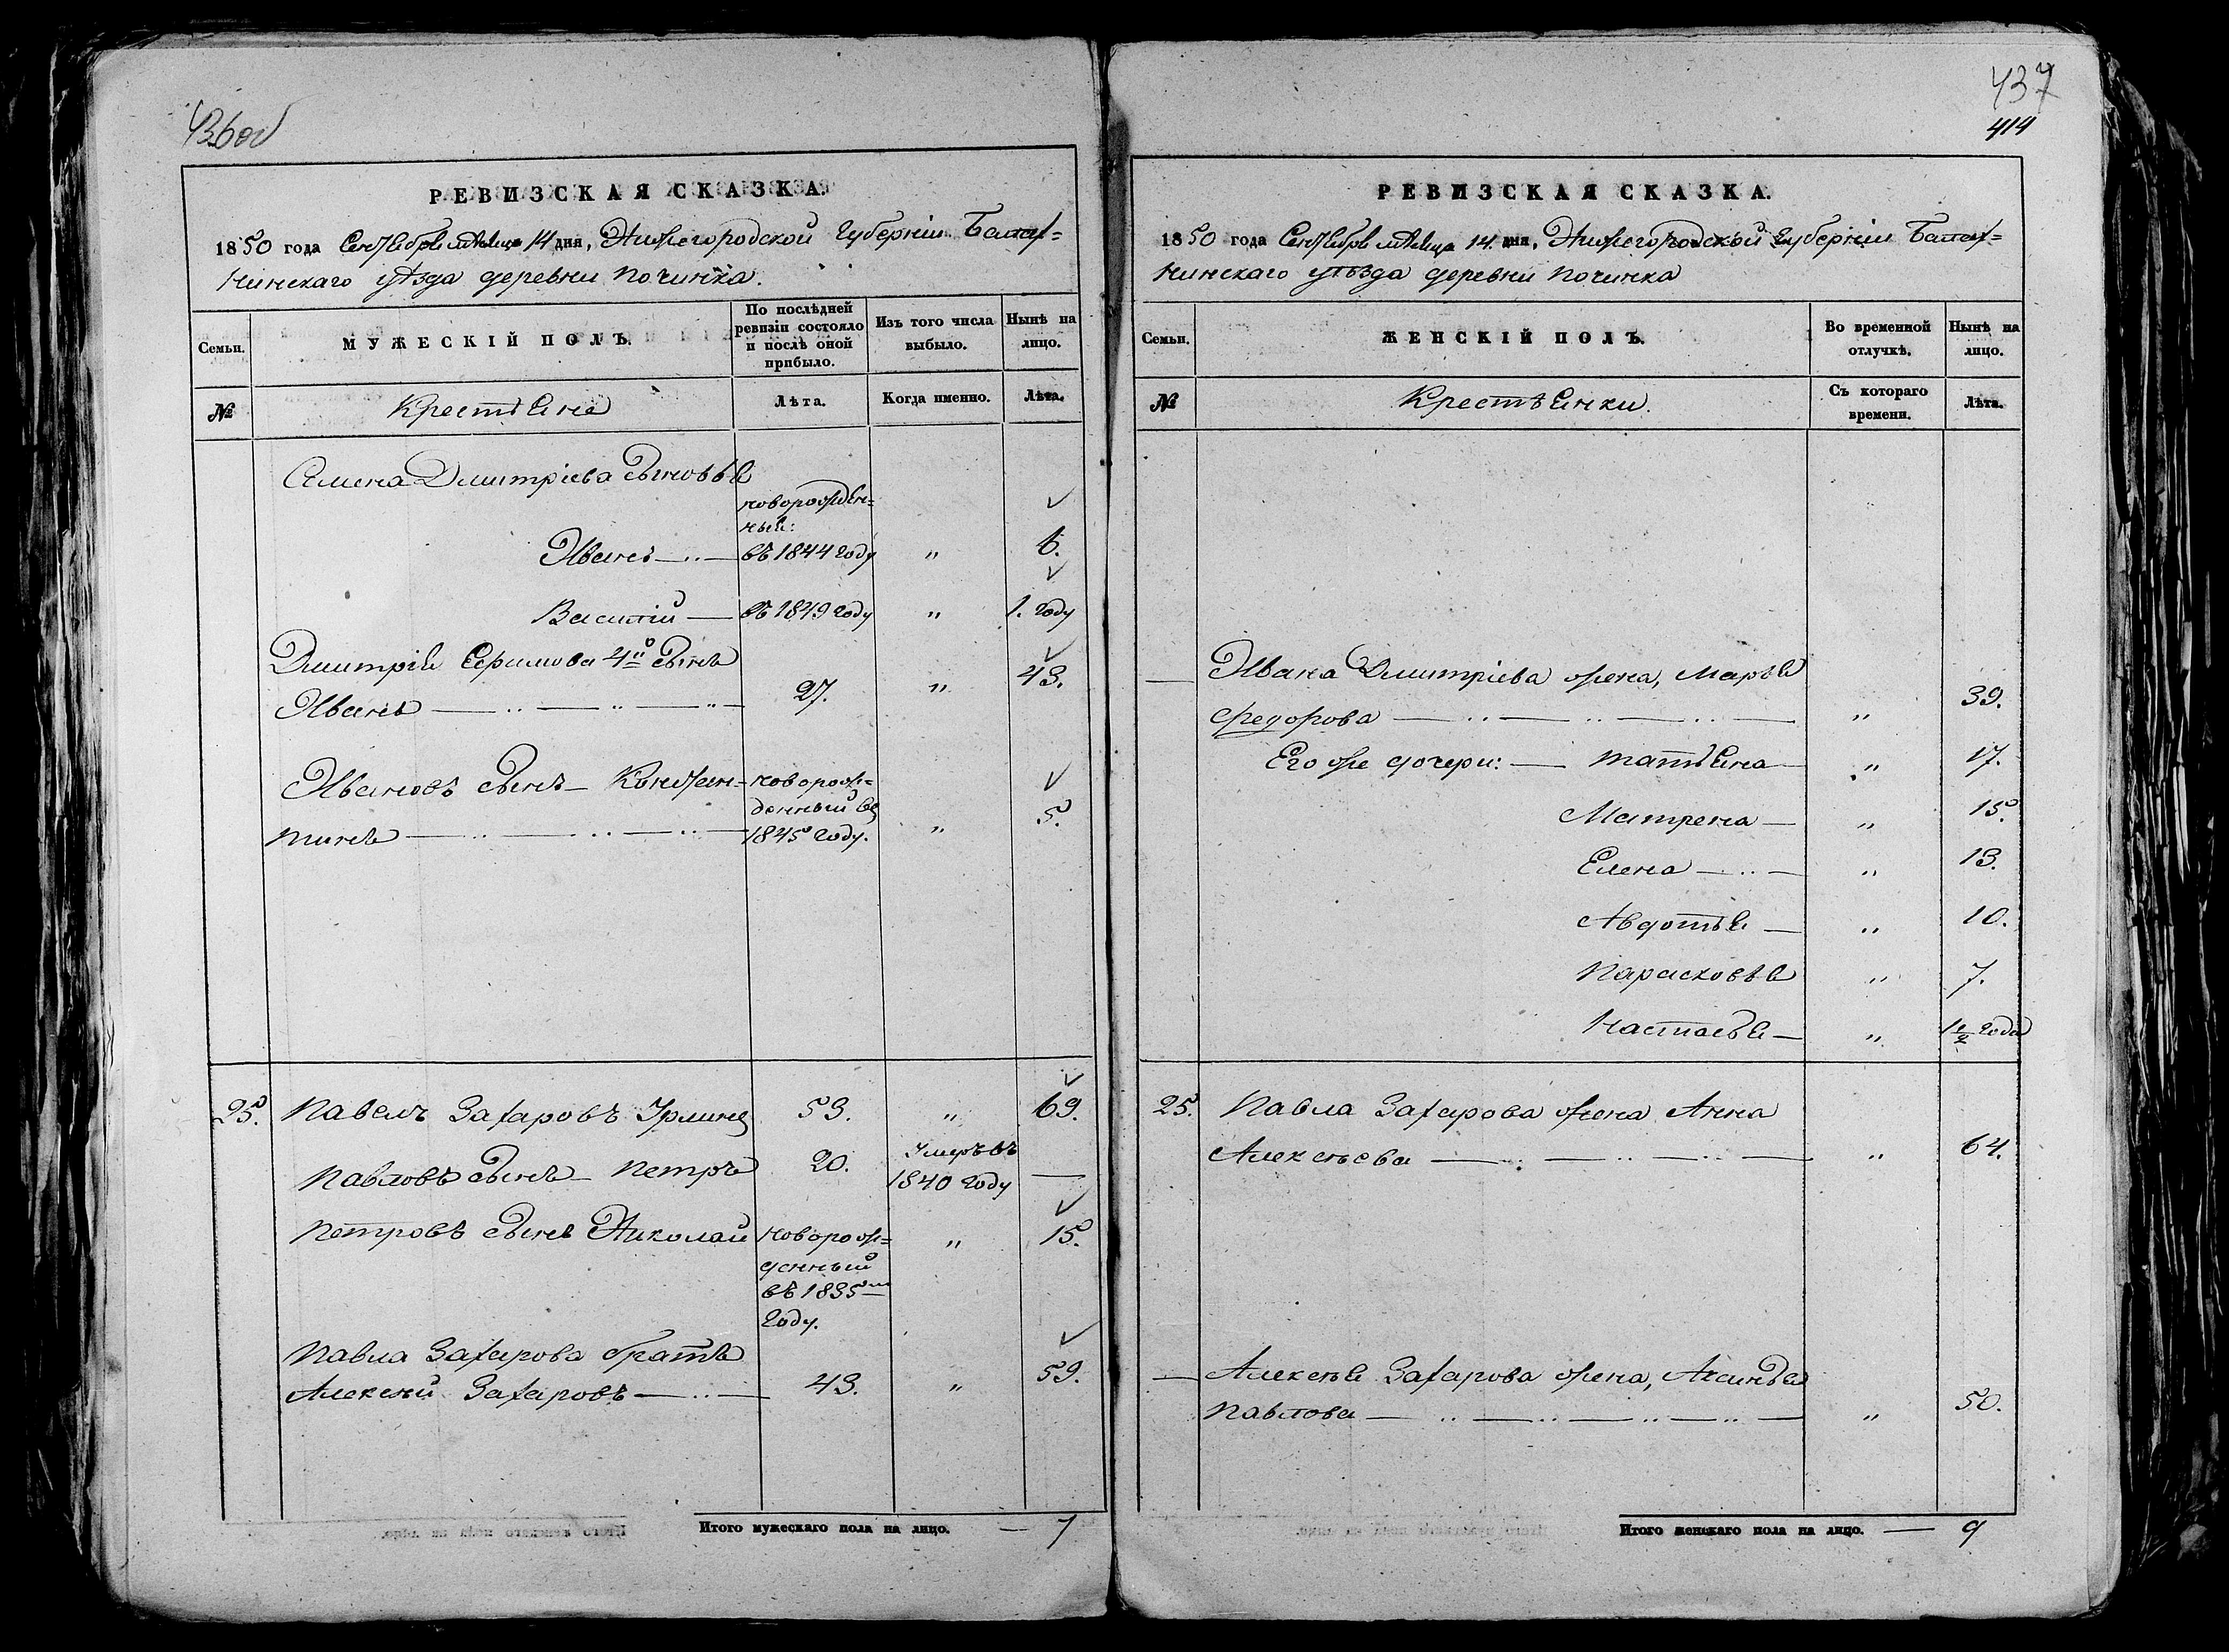 436об
РЕВИЗСКАЯ СКАЗКА.
1850 года Сентября мѣсяца 14 дня, Нижегородской Губерніи Балах=
нинскаго уѣзда деревни Починка.
Семьи.
МУЖЕСКІЙ ПОЛЪ.
По послѣдней
ревизіи состояло
и послѣ оной
прибыло.
Изъ того числа
выбыло.
Нынѣ на
лицо.
№
Крестьяне
Лѣта.
Когда именно.
Лѣта.
Семена Дмитріева сыновья
новорожден=
ныя:
Иванъ — въ 1844 году " 6.
Василій — въ 1849 году " 1. году
Дмитрія Ефимова 4й сынъ
Иванъ — 27. " 43.
Ивановъ сынъ — Констан= новорож=
денный въ
тинъ — 1845 году. " 5.
25. Павелъ Захаровъ 53. " 69.
Павловъ сынъ — Петръ 20. Умеръ въ
1840 году —
Петровъ сынъ Николай новорож= " 15.
денный
въ 1835м
году.
Павла Захарова братъ
Алексѣй Захаровъ — 43. " 59.
Итого мужескаго пола на лицо. — 7
437
414
РЕВИЗСКАЯ СКАЗКА.
1850 года Сентября мѣсяца 14 дня, Нижегородской Губерніи Балах=
нинскаго уѣзда деревни Починка
Семьи.
ЖЕНСКІЙ ПОЛЪ.
Во временной
отлучкѣ.
Нынѣ на
лицо.
№
Крестьянки.
Съ котораго
времени.
Лѣта.
— Ивана Дмитріева жена, Марья
Федорова — " 39.
Его же дочери: — Татьяна — " 17.
Матрена — " 15.
Елена — " 13.
Авдотья — " 10.
Парасковья " 7.
Настасья — " 1 1/2 года
25. Павла Захарова жена Анна
Алексѣева — " 64.
— Алексѣя Захарова жена, Аксинья
Павлова — " 50.
Итого женскаго пола на лицо. — 9